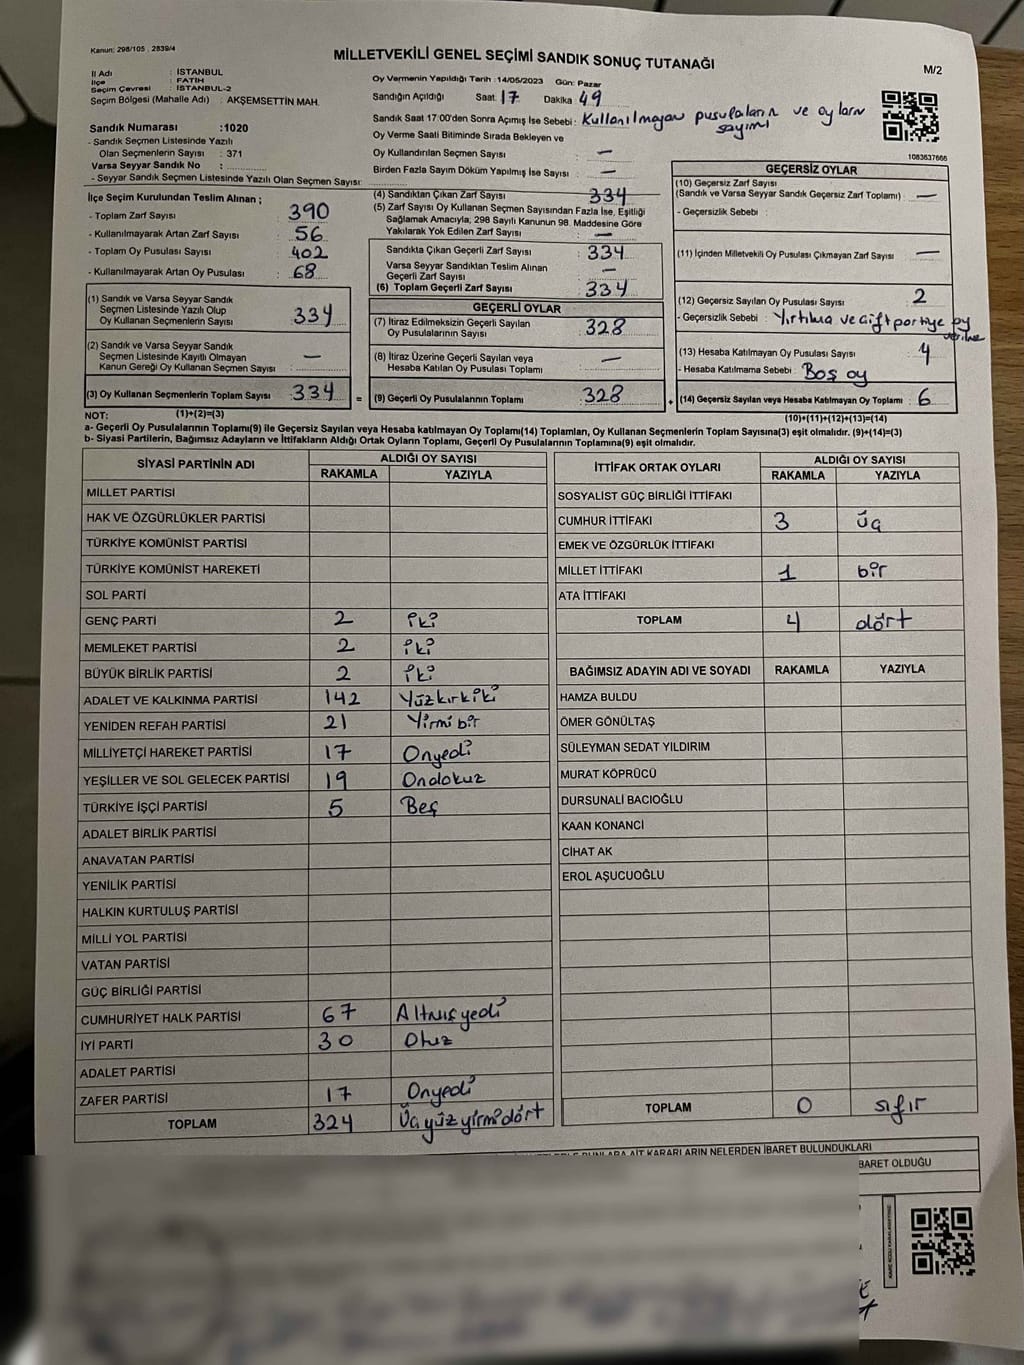 Kanun: 298/105 , 2839/4
MİLLETVEKİLİ GENEL SEÇİMİ SANDIK SONUÇ TUTANAĞI
M/2
İl Adı : İSTANBUL
İlçe : FATİH
Seçim Çevresi : İSTANBUL-2
Seçim Bölgesi (Mahalle Adı) : AKŞEMSETTİN MAH.
Sandık Numarası :1020
- Sandık Seçmen Listesinde Yazılı
Olan Seçmenlerin Sayısı : 371
Varsa Seyyar Sandık No :
- Seyyar Sandık Seçmen Listesinde Yazılı Olan Seçmen Sayısı:
Oy Vermenin Yapıldığı Tarih :14/05/2023 Gün: Pazar
Sandığın Açıldığı Saat 17 Dakika 49
Sandık Saat 17:00'den Sonra Açımış İse Sebebi : Kullanılmayan pusulaların ve oyların
sayımı
Oy Verme Saati Bitiminde Sırada Bekleyen ve
Oy Kullandırılan Seçmen Sayısı : —
Birden Fazla Sayım Döküm Yapılmış İse Sayısı : —
1083637666
İlçe Seçim Kurulundan Teslim Alınan ;
- Toplam Zarf Sayısı : 390
- Kullanılmayarak Artan Zarf Sayısı : 56
- Toplam Oy Pusulası : 402
- Kullanılmayarak Artan Oy Pusulası : 68
(1) Sandık ve Varsa Seyyar Sandık
Seçmen Listesinde Yazılı Olup
Oy Kullanan Seçmenlerin Sayısı : 334
(2) Sandık ve Varsa Seyyar Sandık
Seçmen Listesinde Kayıtlı Olmayan
Kanun Gereği Oy Kullanan Seçmen Sayısı : —
(3) Oy Kullanan Seçmenlerin Toplam Sayısı : 334 =
(1)+(2)=(3)
(4) Sandıktan Çıkan Zarf Sayısı : 334
(5) Zarf Sayısı Oy Kullanan Seçmen Sayısından Fazla İse, Eşitliği
Sağlamak Amacıyla, 298 Sayılı Kanunun 98. Maddesine Göre
Yakılarak Yok Edilen Zarf Sayısı : —
Sandıkta Çıkan Geçerli Zarf Sayısı : 334
Varsa Seyyar Sandıktan Teslim Alınan
Geçerli Zarf Sayısı : —
(6) Toplam Geçerli Zarf Sayısı : 334
GEÇERLİ OYLAR
(7) İtiraz Edilmeksizin Geçerli Sayılan
Oy Pusulalarının Sayısı : 328
(8) İtiraz Üzerine Geçerli Sayılan veya
Hesaba Katılan Oy Pusulası Toplamı : —
(9) Geçerli Oy Pusulalarının Toplamı : 328 +
GEÇERSİZ OYLAR
(10) Geçersiz Zarf Sayısı
(Sandık ve Varsa Seyyar Sandık Geçersiz Zarf Toplamı) : —
- Geçersizlik Sebebi :
(11) İçinden Milletvekili Oy Pusulası Çıkmayan Zarf Sayısı : —
(12) Geçersiz Sayılan Oy Pusulası Sayısı : 2
- Geçersizlik Sebebi : Yırtılma ve çift partiye oy
verilme
(13) Hesaba Katılmayan Oy Pusulası Sayısı : 4
- Hesaba Katılmama Sebebi : Boş oy
(14) Geçersiz Sayılan veya Hesaba Katılmayan Oy Toplamı : 6
(10)+(11)+(12)+(13)=(14)
NOT:
a- Geçerli Oy Pusulalarının Toplamı(9) ile Geçersiz Sayılan veya Hesaba Katılmayan Oy Toplamı(14) Toplamları, Oy Kullanan Seçmenlerin Toplam Sayısına(3) eşit olmalıdır. (9)+(14)=(3)
b- Siyasi Partilerin, Bağımsız Adayların ve İttifakların Aldığı Ortak Oyların Toplamı, Geçerli Oy Pusulalarının Toplamına(9) eşit olmalıdır.
SİYASİ PARTİNİN ADI ALDIĞI OY SAYISI
RAKAMLA YAZIYLA
MİLLET PARTİSİ
HAK VE ÖZGÜRLÜKLER PARTİSİ
TÜRKİYE KOMÜNİST PARTİSİ
TÜRKİYE KOMÜNİST HAREKETİ
SOL PARTİ
GENÇ PARTİ 2 iki
MEMLEKET PARTİSİ 2 iki
BÜYÜK BİRLİK PARTİSİ 2 iki
ADALET VE KALKINMA PARTİSİ 142 Yüzkırkiki
YENİDEN REFAH PARTİSİ 21 Yirmi bir
MİLLİYETÇİ HAREKET PARTİSİ 17 Onyedi
YEŞİLLER VE SOL GELECEK PARTİSİ 19 Ondokuz
TÜRKİYE İŞÇİ PARTİSİ 5 Beş
ADALET BİRLİK PARTİSİ
ANAVATAN PARTİSİ
YENİLİK PARTİSİ
HALKIN KURTULUŞ PARTİSİ
MİLLİ YOL PARTİSİ
VATAN PARTİSİ
GÜÇ BİRLİĞİ PARTİSİ
CUMHURİYET HALK PARTİSİ 67 Altmışyedi
İYİ PARTİ 30 Otuz
ADALET PARTİSİ
ZAFER PARTİSİ 17 Onyedi
TOPLAM 324 Üçyüzyirmidört
İTTİFAK ORTAK OYLARI ALDIĞI OY SAYISI
RAKAMLA YAZIYLA
SOSYALİST GÜÇ BİRLİĞİ İTTİFAKI
CUMHUR İTTİFAKI 3 üç
EMEK VE ÖZGÜRLÜK İTTİFAKI
MİLLET İTTİFAKI 1 bir
ATA İTTİFAKI
TOPLAM 4 dört
BAĞIMSIZ ADAYIN ADI VE SOYADI RAKAMLA YAZIYLA
HAMZA BULDU
ÖMER GÖNÜLTAŞ
SÜLEYMAN SEDAT YILDIRIM
MURAT KÖPRÜCÜ
DURSUNALİ BACIOĞLU
KAAN KONANCİ
CİHAT AK
EROL AŞUCUOĞLU
TOPLAM 0 sıfır
KARARLARIN NELERDEN İBARET BULUNDUKLARI
BARET OLDUĞU